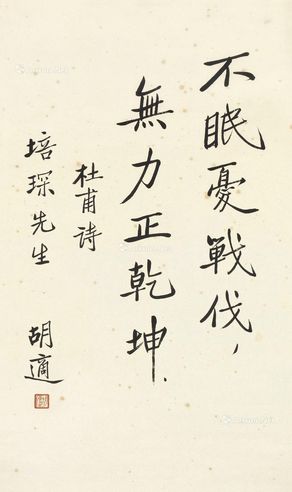 不眠憂戰伐，
無力正乾坤．
杜甫诗
培琛先生
胡適